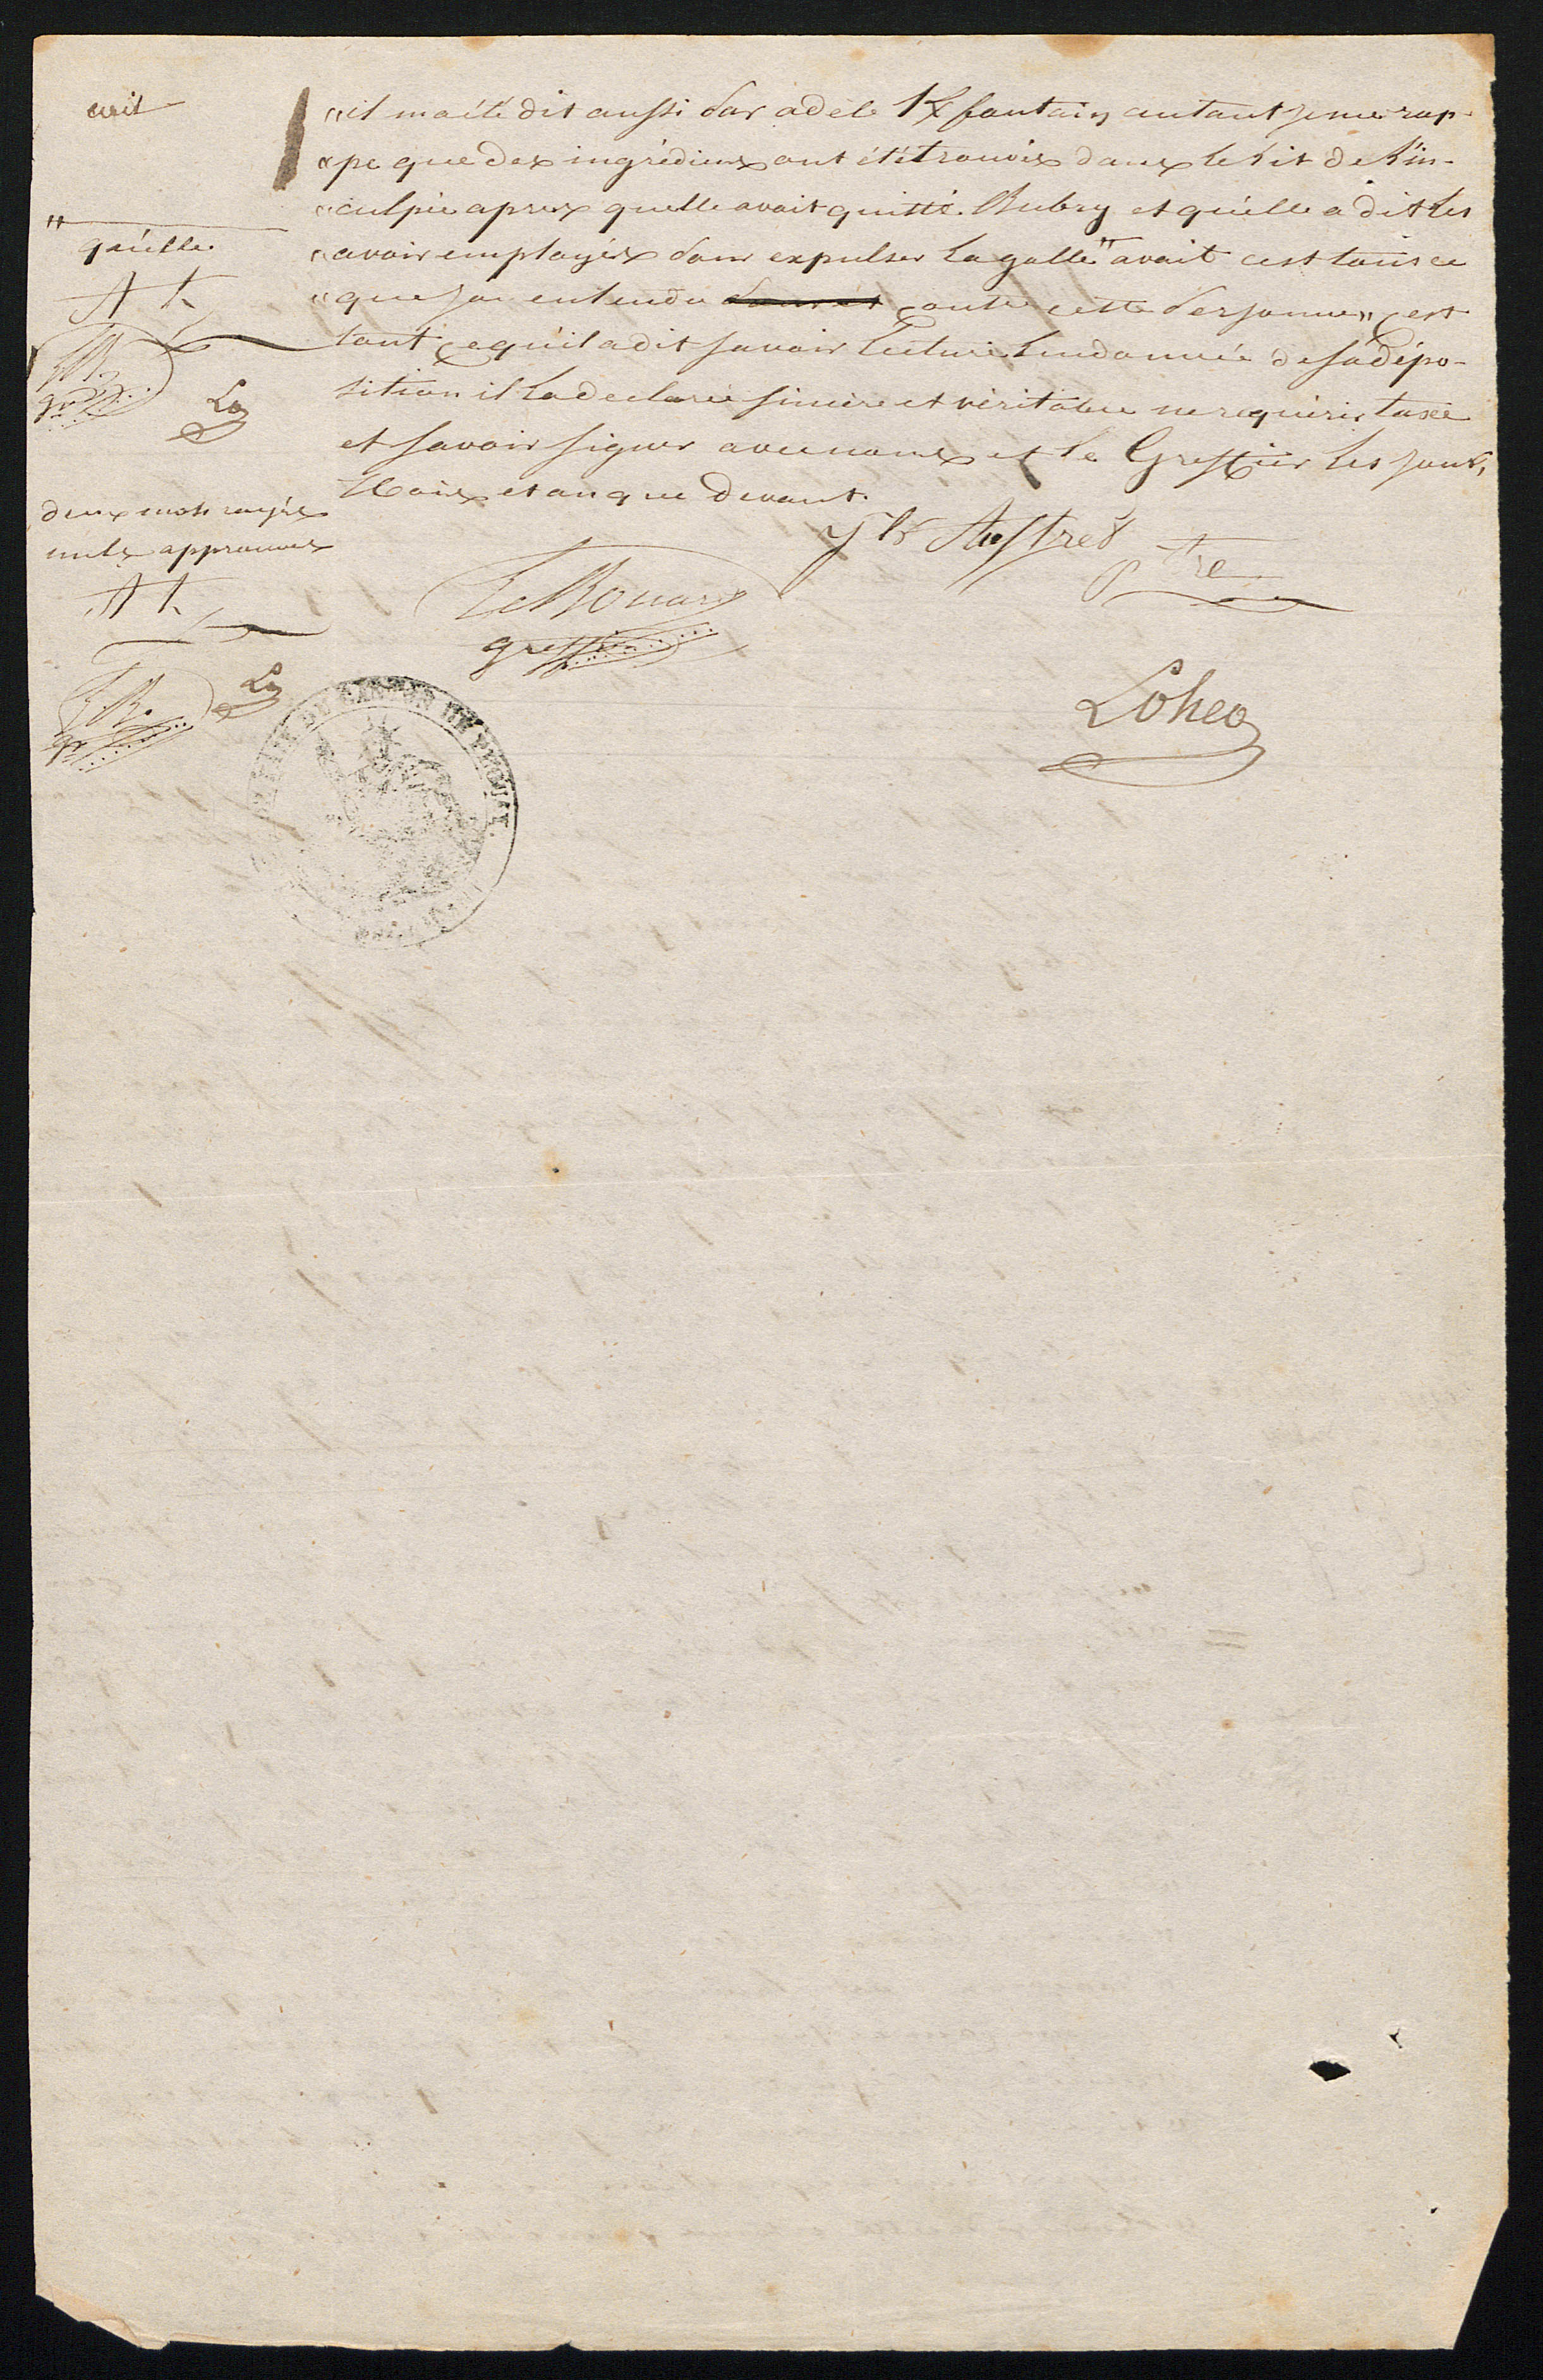 cueil
"il m'a été dit aussi par adele 1X fontain autant je me rap-
"pe que des ingrédiens ont été trouvés dans le lit de l'in-
"culpée après qu'elle avait quitté Aubry et qu'elle a dit les
"avoir employés pour expulser la galle " avait c'est tous ce
"que j'ai entendu contre cette personne" c'est
tout ce qu'il a dit savoir lecture lui donnée de sa dépo-
sition il l'a declarée sincère et véritable ne requérir taxe
et savoir signer avec nous et le Greffier les jour,
mois et an que devant.
"
qu'elle
Lo
deux mots rayés
nuls approuvés
Lo
LeBouar
greffier
ptre
Loheo